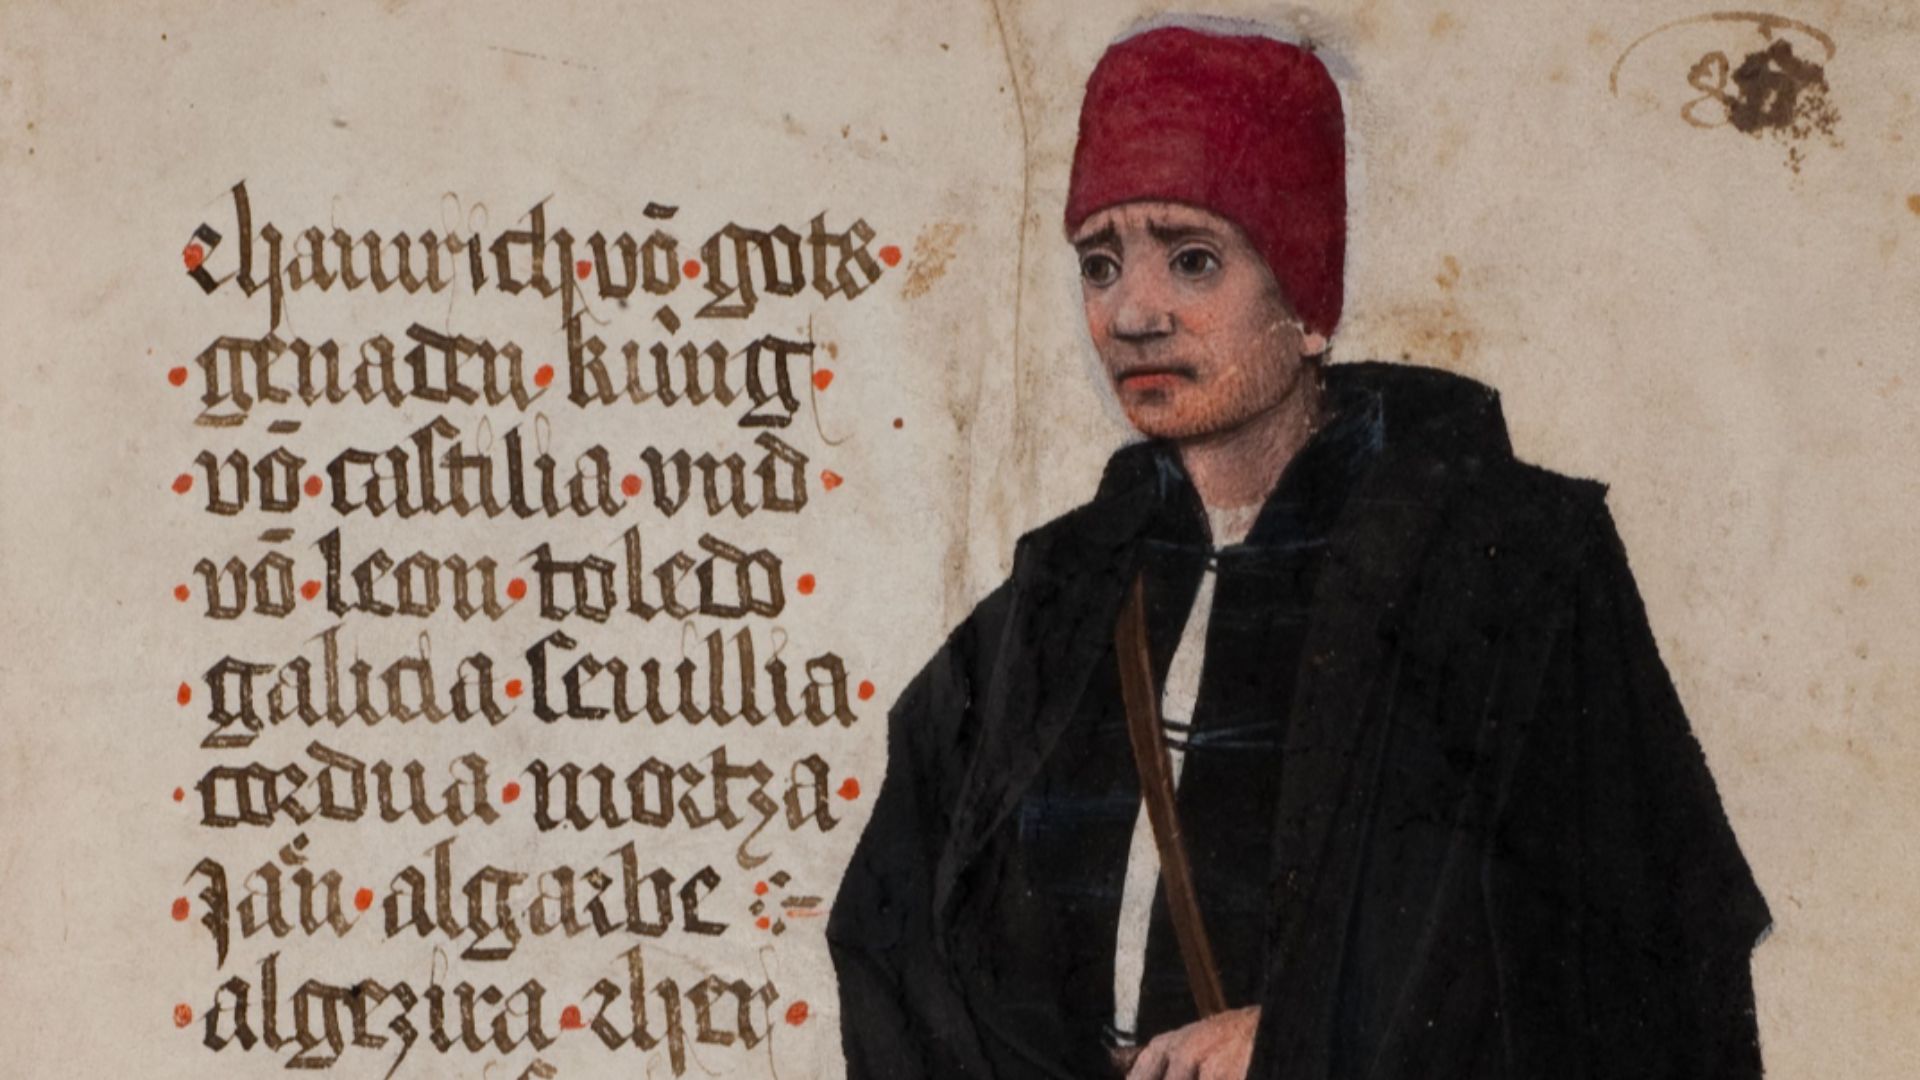 chainrich vō gots
genaden küng
vō castilia vnd
vō leon toledo
galicia seuillia
cordua mortza
Jäň algarbe
algezira rher